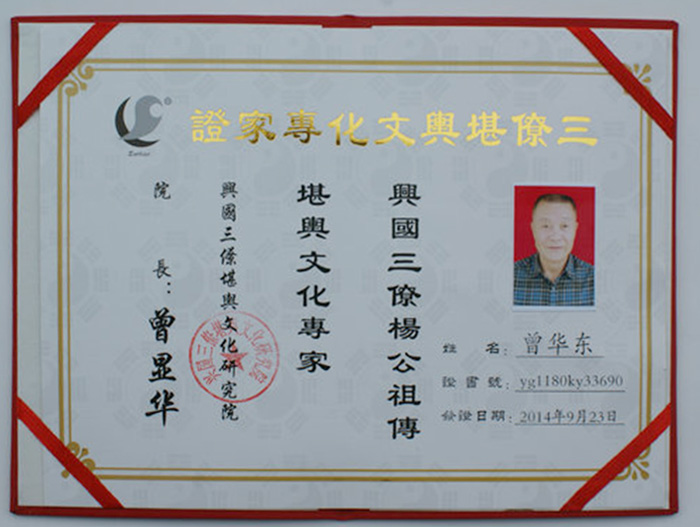 三僚堪輿文化專家證
興國三僚楊公祖傳
堪輿文化專家
姓 名：曾华东
證書號：yg1180ky33690
發證日期：2014年9月23日
興國三僚堪輿文化研究院
院 長：曾显华